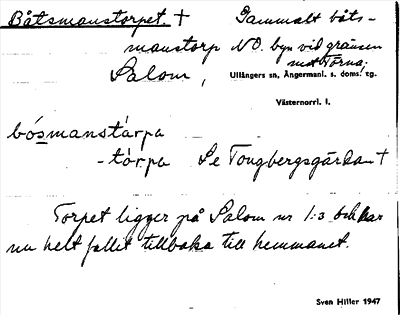 Båtsmanstorpet. † Gammalt båts-
manstorp NO. byn vid gränsen
mot Torna.
Salom,
Ullångers sn, Ångermanl. s. doms. tg.
Västernorrl. l.
bósmanstárpa
-tórpa Se Tongbergsgårdan †
Torpet ligger på Salom nr 1:3 och har
nu helt fallit tillbaka till hemmanet.
Sven Hiller 1947